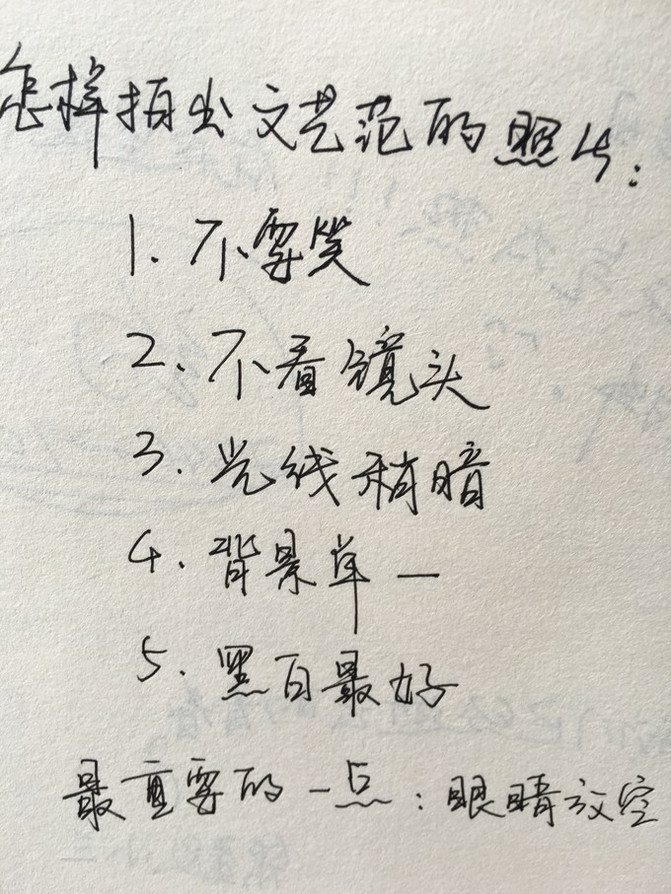 怎样拍出文艺范的照片:
1. 不要笑
2. 不看镜头
3. 光线稍暗
4. 背景单一
5. 黑白最好
最重要的一点:眼睛放空